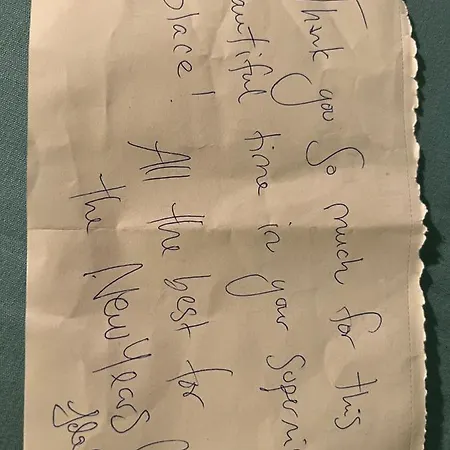 Thank you so much for this
beautiful time in your
place!
All the best for
the New Years